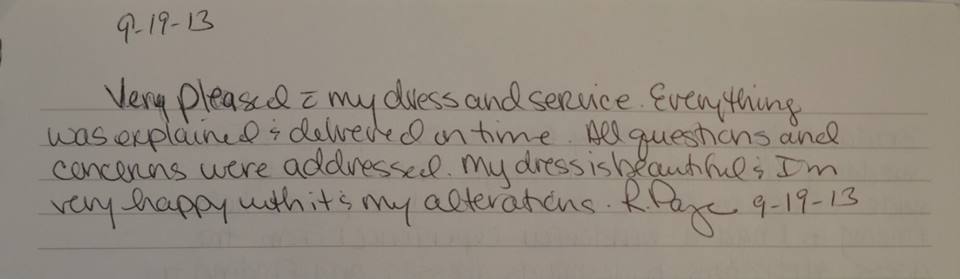 9-19-13
Very pleased c̄ my dress and service. Everything
was explained & delivered on time. All questions and
concerns were addressed. My dress is beautiful & I'm
very happy with it & my alterations. R. Page 9-19-13